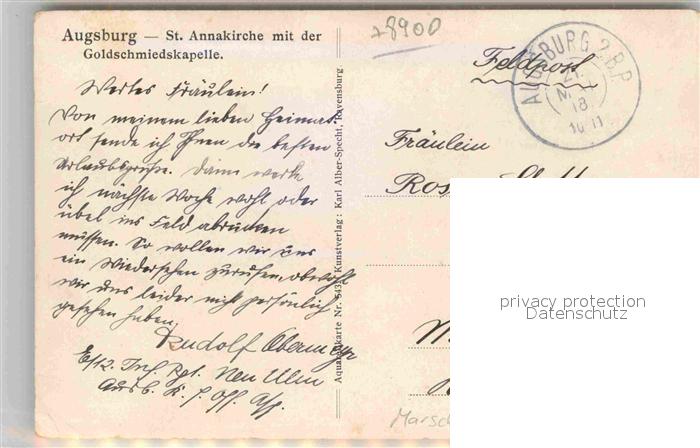 Augsburg — St. Annakirche mit der
Goldschmiedskapelle.
Wertes Fräulein!
Von meinem lieben Heimat-
ort sende ich Ihnen die besten
Urlaubsgrüße. Dann werde
ich nächste Woche wohl oder
übel ins Feld abrücken
müssen. So wollen wir uns
ein Wiedersehen zurufen, obwohl
wir uns leider nicht persönlich
gesehen haben.
Rudolf Obermeyr
E/12. Inf. Rgt. Neu Ulm
Ausb. K. f. Off. Asp.
Aquarellkarte Nr. 543 Kunstverlag: Karl Alber-Specht, Ravensburg.
78900
Feldpost
AUGSBURG 2 B.P.
18
10-11
Fräulein
Ros
privacy protection
Datenschutz
Marsch